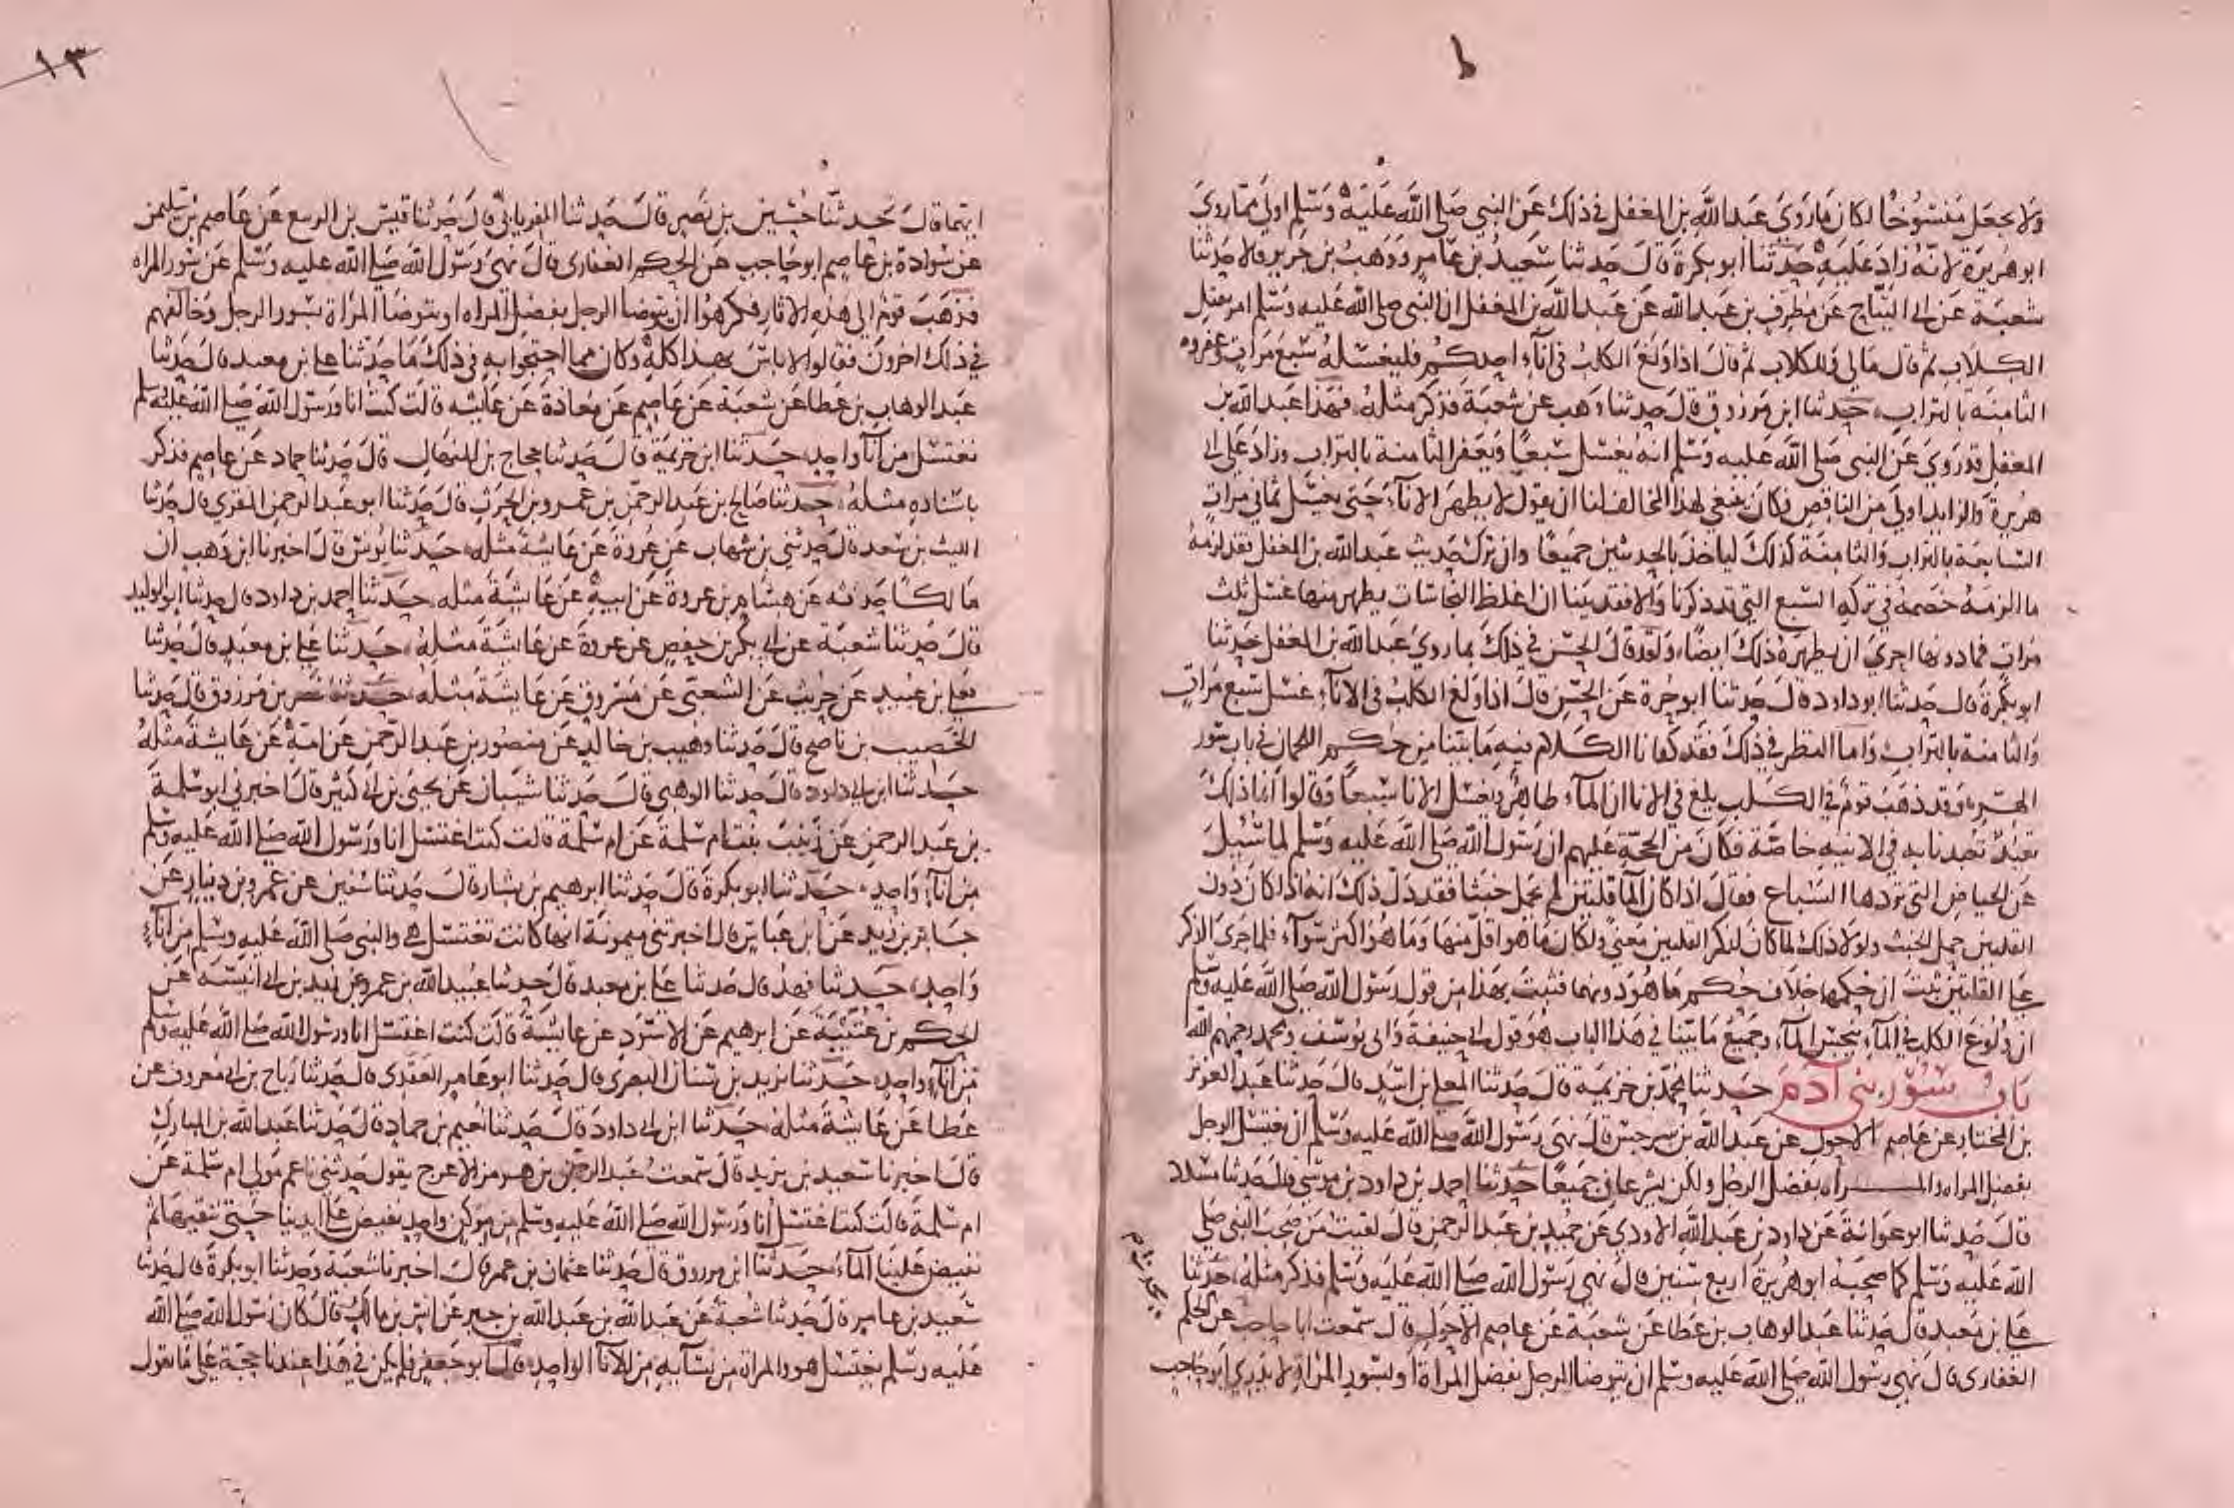 ولا يجعل منسوخا لكان ما روى عبد الله بن المغفل في ذلك عن النبي صلى الله عليه وسلم اولى مما روى
ابو هريرة لانه زاد عليه حدثنا ابو بكرة قال حدثنا سعيد بن عامر ووهب بن جرير قالا حدثنا
شعبة عن ابي التياح عن مطرف بن عبد الله عن عبد الله بن المغفل ان النبي صلى الله عليه وسلم امر بقتل
الكلاب ثم قال مالي وللكلاب ثم قال اذا ولغ الكلب في اناء احدكم فليغسله سبع مرات وعفروه
الثامنة بالتراب حدثنا ابن مرزوق قال حدثنا وهب عن شعبة فذكر مثله فهذا عبد الله بن
المغفل قد روى عن النبي صلى الله عليه وسلم انه يغسل سبعا ويعفر الثامنة بالتراب وزاد على ابي
هريرة والزايد اولى من الناقص فكان ينبغي لهذا المخالف لنا ان يقول لا يطهر الاناء حتى يغسل ثماني مرات
السابعة بالتراب والثامنة كذلك لياخذ بالحديثين جميعا وان ترك حديث عبد الله بن المغفل فقد لزمه
ما الزمه خصمه في تركه السبع التي قد ذكرنا والا فقد بينا ان اغلظ النجاسات يطهر منها غسل ثلث
مرات فما دونها احرى ان يطهره ذلك ايضا ولقد قال الحسن في ذلك بما روى عبد الله بن المغفل حدثنا
ابو بكرة قال حدثنا ابو داود قال حدثنا ابو حرة عن الحسن قال اذا ولغ الكلب في الاناء غسل سبع مرات
والثامنة بالتراب واما النظر في ذلك فقد كفانا الكلام فيه ما بينا من حكم اللحمان في باب سور
الهر وقد ذهب قوم في الكلب يلغ في الانا ان الماء طاهر ويغسل الانا سبعا وقالوا انما ذلك
تعبد تعبدنا به في الانيه خاصة فكان من الحجة عليهم ان رسول الله صلى الله عليه وسلم لما سئيل
عن الحياض التي تردها السباع فقال اذا كان الما قلتين لم يحمل خبثا فقد دل ذلك انه اذا كان دون
القلتين حمل الخبث ولولا ذلك لما كان لذكر القلتين معنى ولكان ما هو اقل منها وما هو اكثر سوآء فلما جرى الذكر
على القلتين ثبت ان حكمها خلاف حكم ما هو دونهما فثبت بهذا من قول رسول الله صلى الله عليه وسلم
ان ولوغ الكلب في الماء ينجس الماء وجميع ما بينا في هذا الباب هو قول ابي حنيفة وابي يوسف ومحمد رحمهم الله
باب سور بني آدم حدثنا محمد بن خزيمة قال حدثنا المعلى بن اسد قال حدثنا عبد العزيز
بن المختار عن عاصم الاحول عن عبد الله بن سرجس قال نهى رسول الله صلى الله عليه وسلم ان يغتسل الرجل
بفضل المراه والمراه بفضل الرجل ولكن يشرعان جميعا حدثنا احمد بن داود بن موسى قال حدثنا مسدد
قال حدثنا ابو عوانة عن داود بن عبد الله الاودي عن حميد بن عبد الرحمن قال لقيت من صحب النبي صلى
الله عليه وسلم كما صحبه ابو هريرة اربع سنين قال نهى رسول الله صلى الله عليه وسلم فذكر مثله حدثنا
علي بن معبد قال حدثنا عبد الوهاب بن عطا عن شعبة عن عاصم الاحول قال سمعت ابا حاجب عن الحكم
الغفاري قال نهى رسول الله صلى الله عليه وسلم ان يتوضا الرجل بفضل المراة او بسور المراة لا يدري ابو حاجب
١٣
ايتهما قال حدثنا حسين بن نصر قال حدثنا الفريابي قال حدثنا قيس بن الربيع عن عاصم بن سليمن
عن سوادة بن عاصم ابو حاجب عن الحكم الغفاري قال نهى رسول الله صلى الله عليه وسلم عن سور المراه
فذهب قوم الى هذه الاثار فكرهوا ان يتوضا الرجل بفضل المراه او يتوضا المراة بسور الرجل وخالفهم
في ذلك اخرون فقالوا لا باس بهذا كله وكان مما احتجوا به في ذلك ما حدثنا علي بن معبد قال حدثنا
عبد الوهاب بن عطا عن شعبة عن عاصم عن معاذة عن عايشه قالت كنت انا ورسول الله صلى الله عليه وسلم
نغتسل من اناء واحد حدثنا ابن خزيمة قال حدثنا حجاج بن المنهال قال حدثنا حماد عن عاصم فذكر
باسناده مثله حدثنا صالح بن عبد الرحمن بن عمرو بن الحرث قال حدثنا ابو عبد الرحمن المقري قال حدثنا
الليث بن سعد قال حدثني بن شهاب عن عروة عن عايشة مثله حدثنا يونس قال اخبرنا ابن وهب ان
مالكا حدثه عن هشام بن عروة عن ابيه عن عايشة مثله حدثنا احمد بن داود قال حدثنا ابو الوليد
قال حدثنا شعبة عن ابي بكر بن حفص عن عروة عن عايشة مثله حدثنا علي بن معبد قال حدثنا
يعلى بن عبيد عن حريث عن الشعبي عن مسروق عن عايشة مثله حدثنا نصر بن مرزوق قال حدثنا
الخصيب بن ناصح قال حدثنا وهيب بن خالد عن منصور بن عبد الرحمن عن امه عن عايشة مثله
حدثنا ابن ابي داود قال حدثنا الوهبي قال حدثنا شيبان عن يحيى بن ابي كثير قال اخبرني ابو سلمة
بن عبد الرحمن عن زينب بنت ام سلمة عن ام سلمة قالت كنت اغتسل انا ورسول الله صلى الله عليه وسلم
من اناء واحد حدثنا ابو بكرة قال حدثنا ابرهيم بن بشار قال حدثنا سفين عن عمرو بن دينار عن
جابر بن زيد عن ابن عباس قال اخبرتني ميمونة انها كانت تغتسل هي والنبي صلى الله عليه وسلم من اناء
واحد حدثنا فهد قال حدثنا علي بن معبد قال حدثنا عبيد الله بن عمرو عن زيد بن ابي انيسه عن
الحكم بن عتيبة عن ابرهيم عن الاسود عن عايشة قالت كنت اغتسل انا ورسول الله صلى الله عليه وسلم
من اناء واحد حدثنا يزيد بن سنان البصري قال حدثنا ابو عامر العقدي قال حدثنا رباح بن ابي معروف عن
عطا عن عايشة مثله حدثنا ابن ابي داود قال حدثنا نعيم بن حماد قال حدثنا عبد الله بن المبارك
قال اخبرنا سعيد بن يزيد قال سمعت عبد الرحمن بن هرمز الاعرج يقول حدثني ناعم مولى ام سلمة عن
ام سلمة قالت كنت اغتسل انا ورسول الله صلى الله عليه وسلم من مركن واحد نفيض على ايدينا حتى ننقيها ثم
نفيض علينا الماء حدثنا ابن مرزوق قال حدثنا عثمان بن عمر قال اخبرنا شعبة وحدثنا ابو بكرة قال حدثنا
سعيد بن عامر قال حدثنا شعبة عن عبد الله بن عبد الله بن جبر عن انس بن مالك قال كان رسول الله صلى الله
عليه وسلم يغتسل هو والمراة من نسآيه من الانا الواحد قال ابو جعفر فلم يكن في هذا عندنا حجة على ما يقول